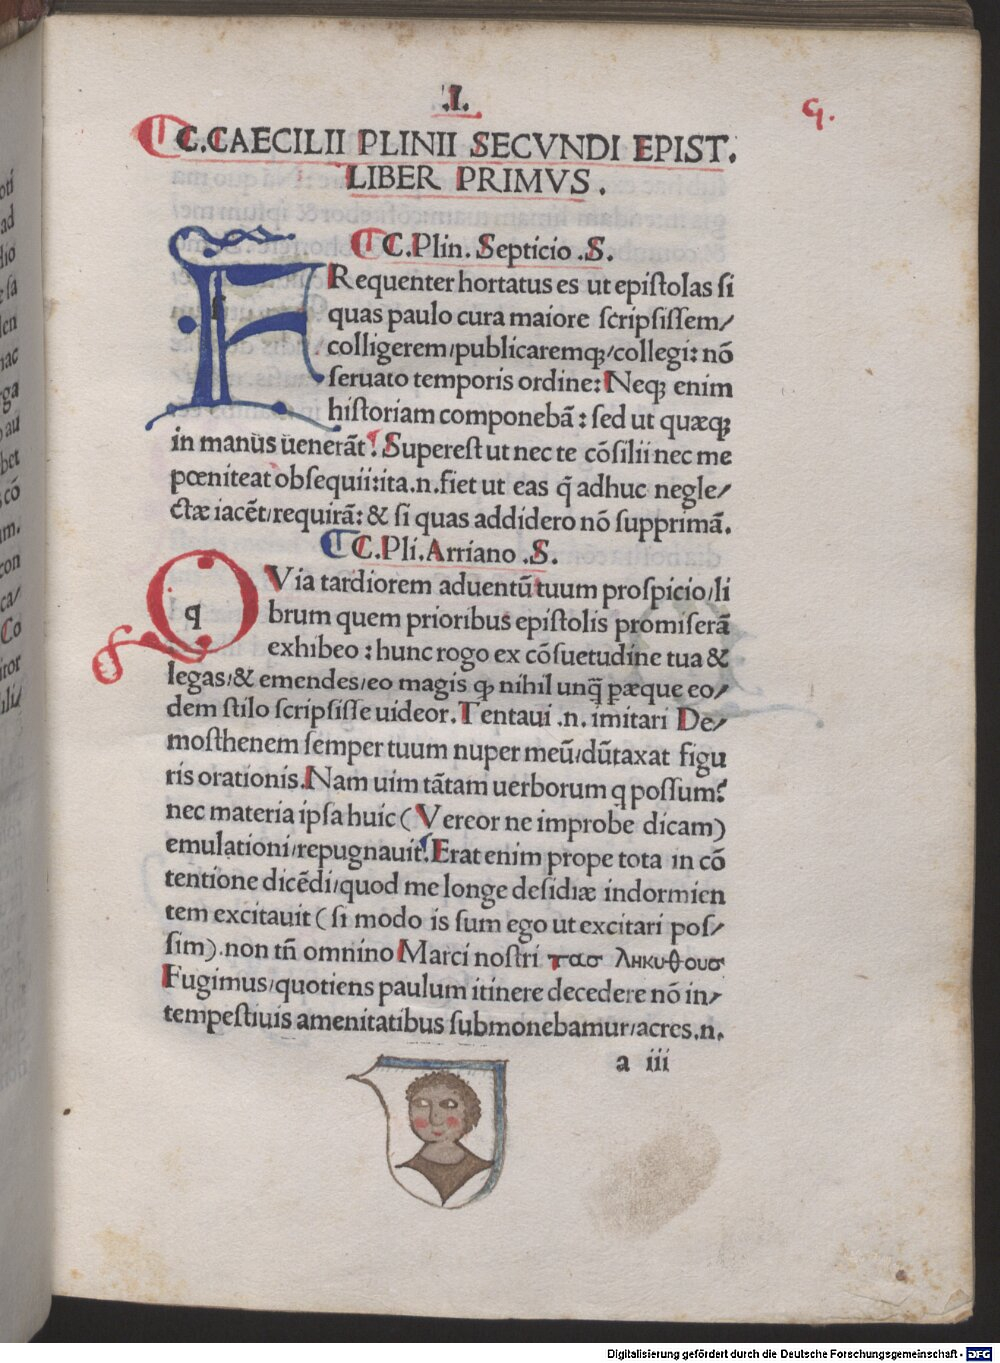 .I.
9.
C.CAECILII PLINII SECVNDI EPIST.
LIBER PRIMVS.
C.Plin. Septicio .S.
FRequenter hortatus es ut epiſtolas ſi
quas paulo cura maiore ſcripſiſſem/
colligerem/publicaremq;/collegi: nō
ſeruato temporis ordine: Neq; enim
hiſtoriam componebā: ſed ut quæq;
in manus uenerāt. Supereſt ut nec te cōſilii nec me
pœniteat obſequii:ita.n.fiet ut eas q̄ adhuc negle/
ctæ iacēt/requirā: & ſi quas addidero nō ſupprimā.
C.Pli. Arriano .S.
QVia tardiorem aduentū tuum proſpicio/li
q
brum quem prioribus epiſtolis promiſerā
exhibeo: hunc rogo ex cōſuetudine tua &
legas/& emendes/eo magis ꝙ nihil unq̄ pæque eo/
dem ſtilo ſcripſiſſe uideor. Tentaui .n. imitari De/
moſthenem ſemper tuum nuper meū/dūtaxat figu
ris orationis. Nam uim tātam uerborum q poſſum?
nec materia ipſa huic (Vereor ne improbe dicam)
emulationi/repugnauit. Erat enim prope tota in cō
tentione dicēdi/quod me longe deſidiæ indormien
tem excitauit (ſi modo is ſum ego ut excitari poſ/
ſim).non tn̄ omnino Marci noſtri τασ ληκυθουσ
Fugimus/quotiens paulum itinere decedere nō in/
tempeſtiuis amenitatibus ſubmonebamur/acres.n.
a iii
Digitalisierung gefördert durch die Deutsche Forschungsgemeinschaft - DFG